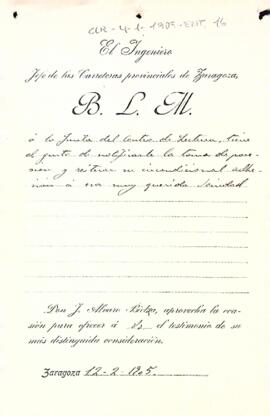 CLR-4-1-1905-ENT. 16
El Ingeniero
Jefe de las Carreteras provinciales de Zaragoza,
B. L. M.
á la Junta del Centro de Lectura, tiene
el gusto de notificarle la toma de pose-
sion y reiterar su incondicional adhe-
sion á esa muy querida Sociedad
Don J. Alvaro Bielza, aprovecha la oca-
sión para ofrecer á Vs. el testimonio de su
más distinguida consideración.
Zaragoza 12-2-1905.